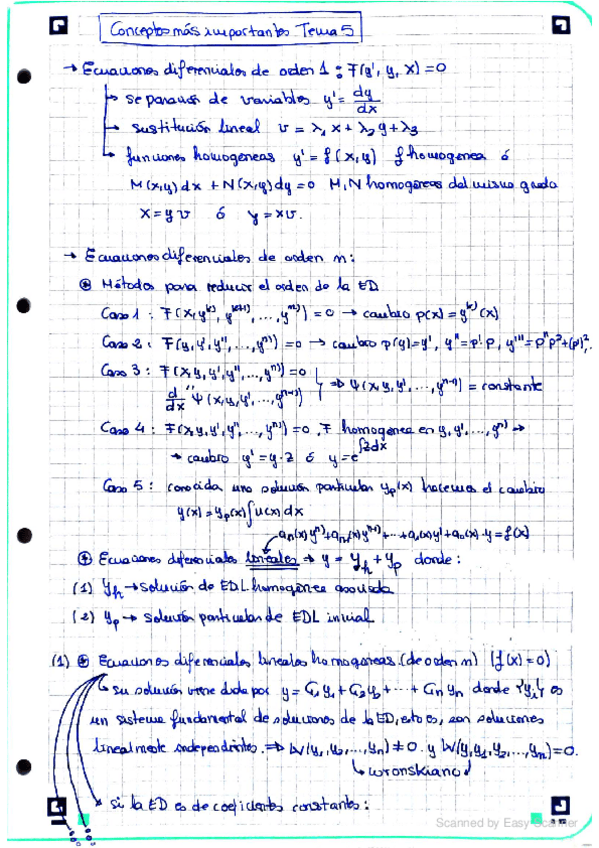 Conceptos más importantes Tema 5
→ Ecuaciones diferenciales de orden 1 : F(y', y, x) = 0
→ separación de variables y' = dy/dx
→ sustitución lineal v = λ₁x + λ₂y + λ₃
→ funciones homogéneas y' = f(x,y) f homogénea ó
M(x,y)dx + N(x,y)dy = 0 M,N homogéneas del mismo grado
x = yv ó y = xv.
→ Ecuaciones diferenciales de orden n:
⊛ Métodos para reducir el orden de la ED
Caso 1 : F(x, y^(k), y^(k+1), ..., y^n)) = 0 → cambio p(x) = y^(k)(x)
Caso 2 : F(y, y', y'', ..., y^n)) = 0 → cambio p(y) = y', y'' = p'p, y''' = p''p² + (p')²
Caso 3 : F(x, y, y', y'', ..., y^n)) = 0
d/dx Ψ(x, y, y', ..., y^n-1)) ⇒ Ψ(x, y, y', ..., y^n-1)) = constante
Caso 4 : F(x, y, y', y'', ..., y^n)) = 0, F homogénea en y, y', ..., y^n) →
→ cambio y' = y·z ó y = e^∫zdx
Caso 5 : conocida una solución particular yp(x) hacemos el cambio
y(x) = yp(x) ∫u(x)dx
an(x)y^n) + an-1(x)y^n-1) + ... + a1(x)y' + a0(x)·y = f(x)
⊛ Ecuaciones diferenciales lineales ⇒ y = yh + yp donde :
(1) yh → solución de EDL homogénea asociada
(2) yp → solución particular de EDL inicial
(1) ⊛ Ecuaciones diferenciales lineales homogéneas (de orden n) (f(x) = 0)
su solución viene dada por y = C1y1 + C2y2 + ... + Cnyn donde {yi} es
un sistema fundamental de soluciones de la ED, esto es, son soluciones
linealmente independientes. ⇒ W(y1, y2, ..., yn) ≠ 0. y W(y, y1, y2, ..., yn) = 0.
wronskiano
si la ED es de coeficientes constantes :
Scanned by Easy Scanner